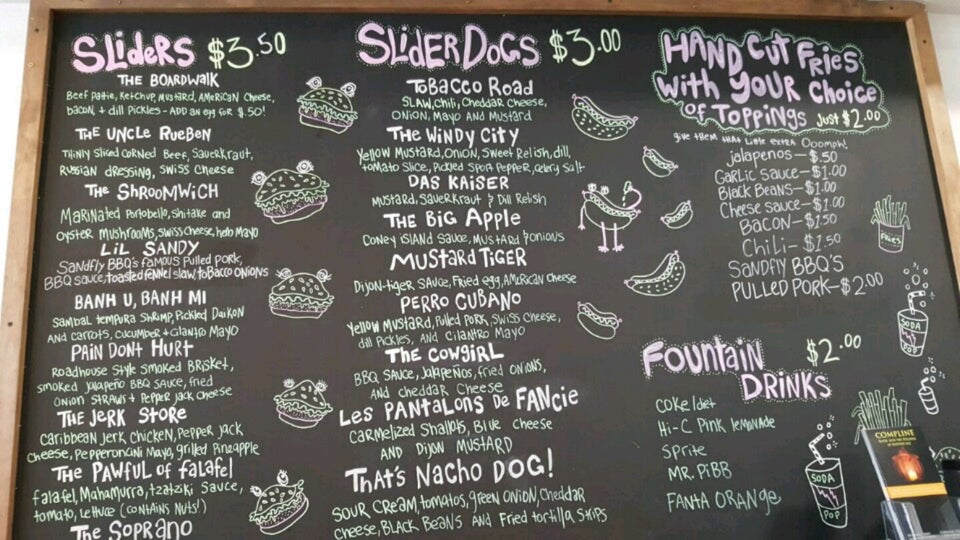 SLiDERS $3.50
THE BOARDWALK
Beef Pattie, Ketchup, Mustard, AMERICAN Cheese,
bacon, + dill Pickles - ADD AN egg FOR $.50!
THE UNCLE RUEBEN
THINLY Sliced CORNED Beef, SAUERKRAUT,
RUSSIAN dRESSING, SWISS CHEESE
THE SHROOMWICH
MARINATED PORTOBELLO, SHITAKE AND
OYSTER MUSHROOMS, SWISS CHEESE, HERb MAYO
LIL SANDY
SANDFLY BBQ'S FAMOUS PULLED PORK,
BBQ SAUCE, TOASTED FENNEL SLAW, TOBACCO ONIONS
BANH U, BANH MI
SAMBAL TEMPURA SHRIMP, PICKLED DAIKON
AND CARROTS, CUCUMBER + CILANTRO MAYO
PAIN DONT HURT
ROADHOUSE STYLE SMOKED BRISKET,
SMOKED JALAPEÑO BBQ SAUCE, FRIED
ONION STRAWS + PEPPER JACK CHEESE
THE JERK STORE
CARIBBEAN JERK CHICKEN, PEPPER JACK
CHEESE, PEPPERONCINI MAYO, GRILLED PINEAPPLE
THE PAWFUL OF FALAFEL
FALAFEL, MAHAMURRA, TZATZIKI SAUCE,
TOMATO, LETTUCE (CONTAINS NUTS!)
THE SOPRANO
SLIDER DOGS $3.00
TOBACCO ROAD
SLAW, CHILI, CHEDDAR CHEESE,
ONION, MAYO AND MUSTARD
THE WINDY CITY
YELLOW MUSTARD, ONION, SWEET RELISH, DILL,
TOMATO SLICE, PICKLED SPORT PEPPER, CELERY SALT
DAS KAISER
MUSTARD, SAUERKRAUT & DILL RELISH
THE BIG APPLE
CONEY ISLAND SAUCE, MUSTARD & ONIONS
MUSTARD TIGER
DIJON-TIGER SAUCE, FRIED EGG, AMERICAN CHEESE
PERRO CUBANO
YELLOW MUSTARD, PULLED PORK, SWISS CHEESE,
DILL PICKLES, AND CILANTRO MAYO
THE COWGIRL
BBQ SAUCE, JALAPEÑOS, FRIED ONIONS,
AND CHEDDAR CHEESE
LES PANTALONS DE FANCIE
CARMELIZED SHALLOTS, BLUE CHEESE
AND DIJON MUSTARD
THAT'S NACHO DOG!
SOUR CREAM, TOMATOS, GREEN ONION, CHEDDAR
CHEESE, BLACK BEANS AND FRIED TORTILLA STRIPS
HAND CUT FRIES
WITH YOUR CHOICE
OF TOPPINGS JUST $2.00
GIVE THEM THAT LITTLE EXTRA OOOMPH!
JALAPENOS — $.50
GARLIC SAUCE — $1.00
BLACK BEANS — $1.00
CHEESE SAUCE — $1.00
BACON — $1.50
CHILI — $1.50
SANDFLY BBQ'S
PULLED PORK — $2.00
FRIES
SODA
POP
FOUNTAIN $2.00
DRINKS
COKE/DIET
HI-C PINK LEMONADE
SPRITE
MR. PIBB
FANTA ORANGE
SODA
POP
COMPLINE